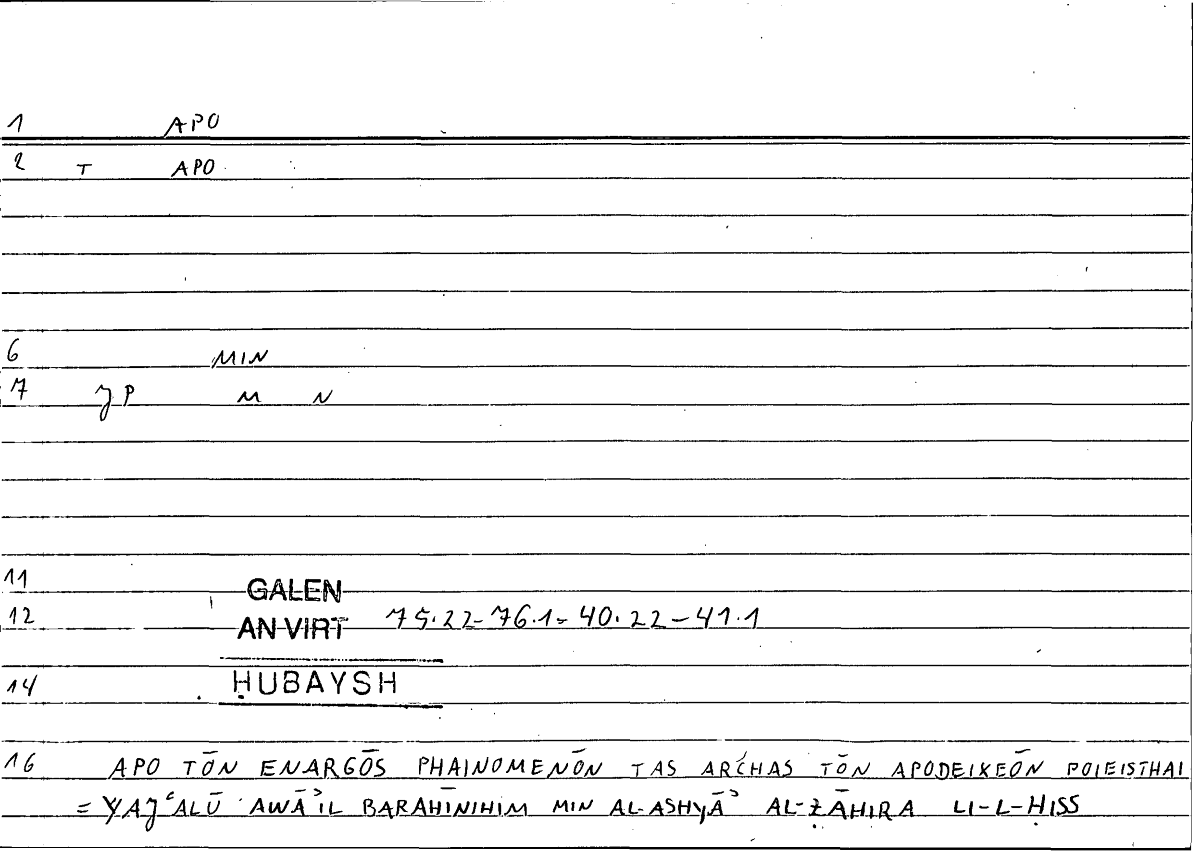 1 APO
2 T APO
6 MIN
7 JP M N
11
GALEN
12
AN VIRT 75.22-76.1 = 40.22-41.1
14 ḤUBAYSH
16 APO TŌN ENARGŌS PHAINOMENŌN TAS ARCHAS TŌN APODEIXEŌN POIEISTHAI
= YAJʿALŪ AWĀʾIL BARAHĪNIHIM MIN AL-ASHYĀʾ AL-ẒĀHIRA LI-L-ḤISS